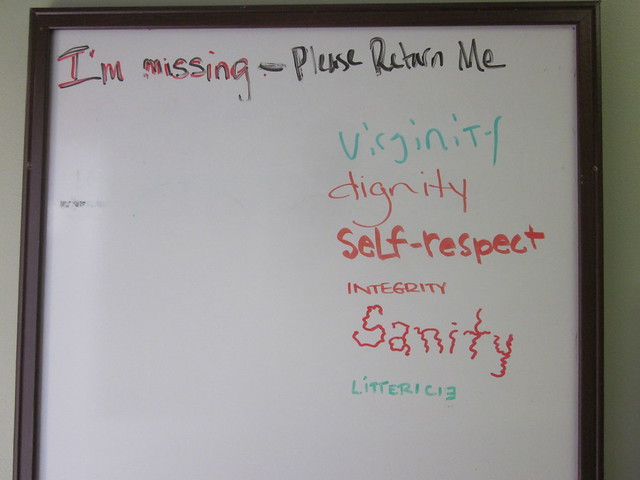 I'm missing - Please Return Me
virginity
dignity
self-respect
INTEGRITY
Sanity
LiTTERICIE